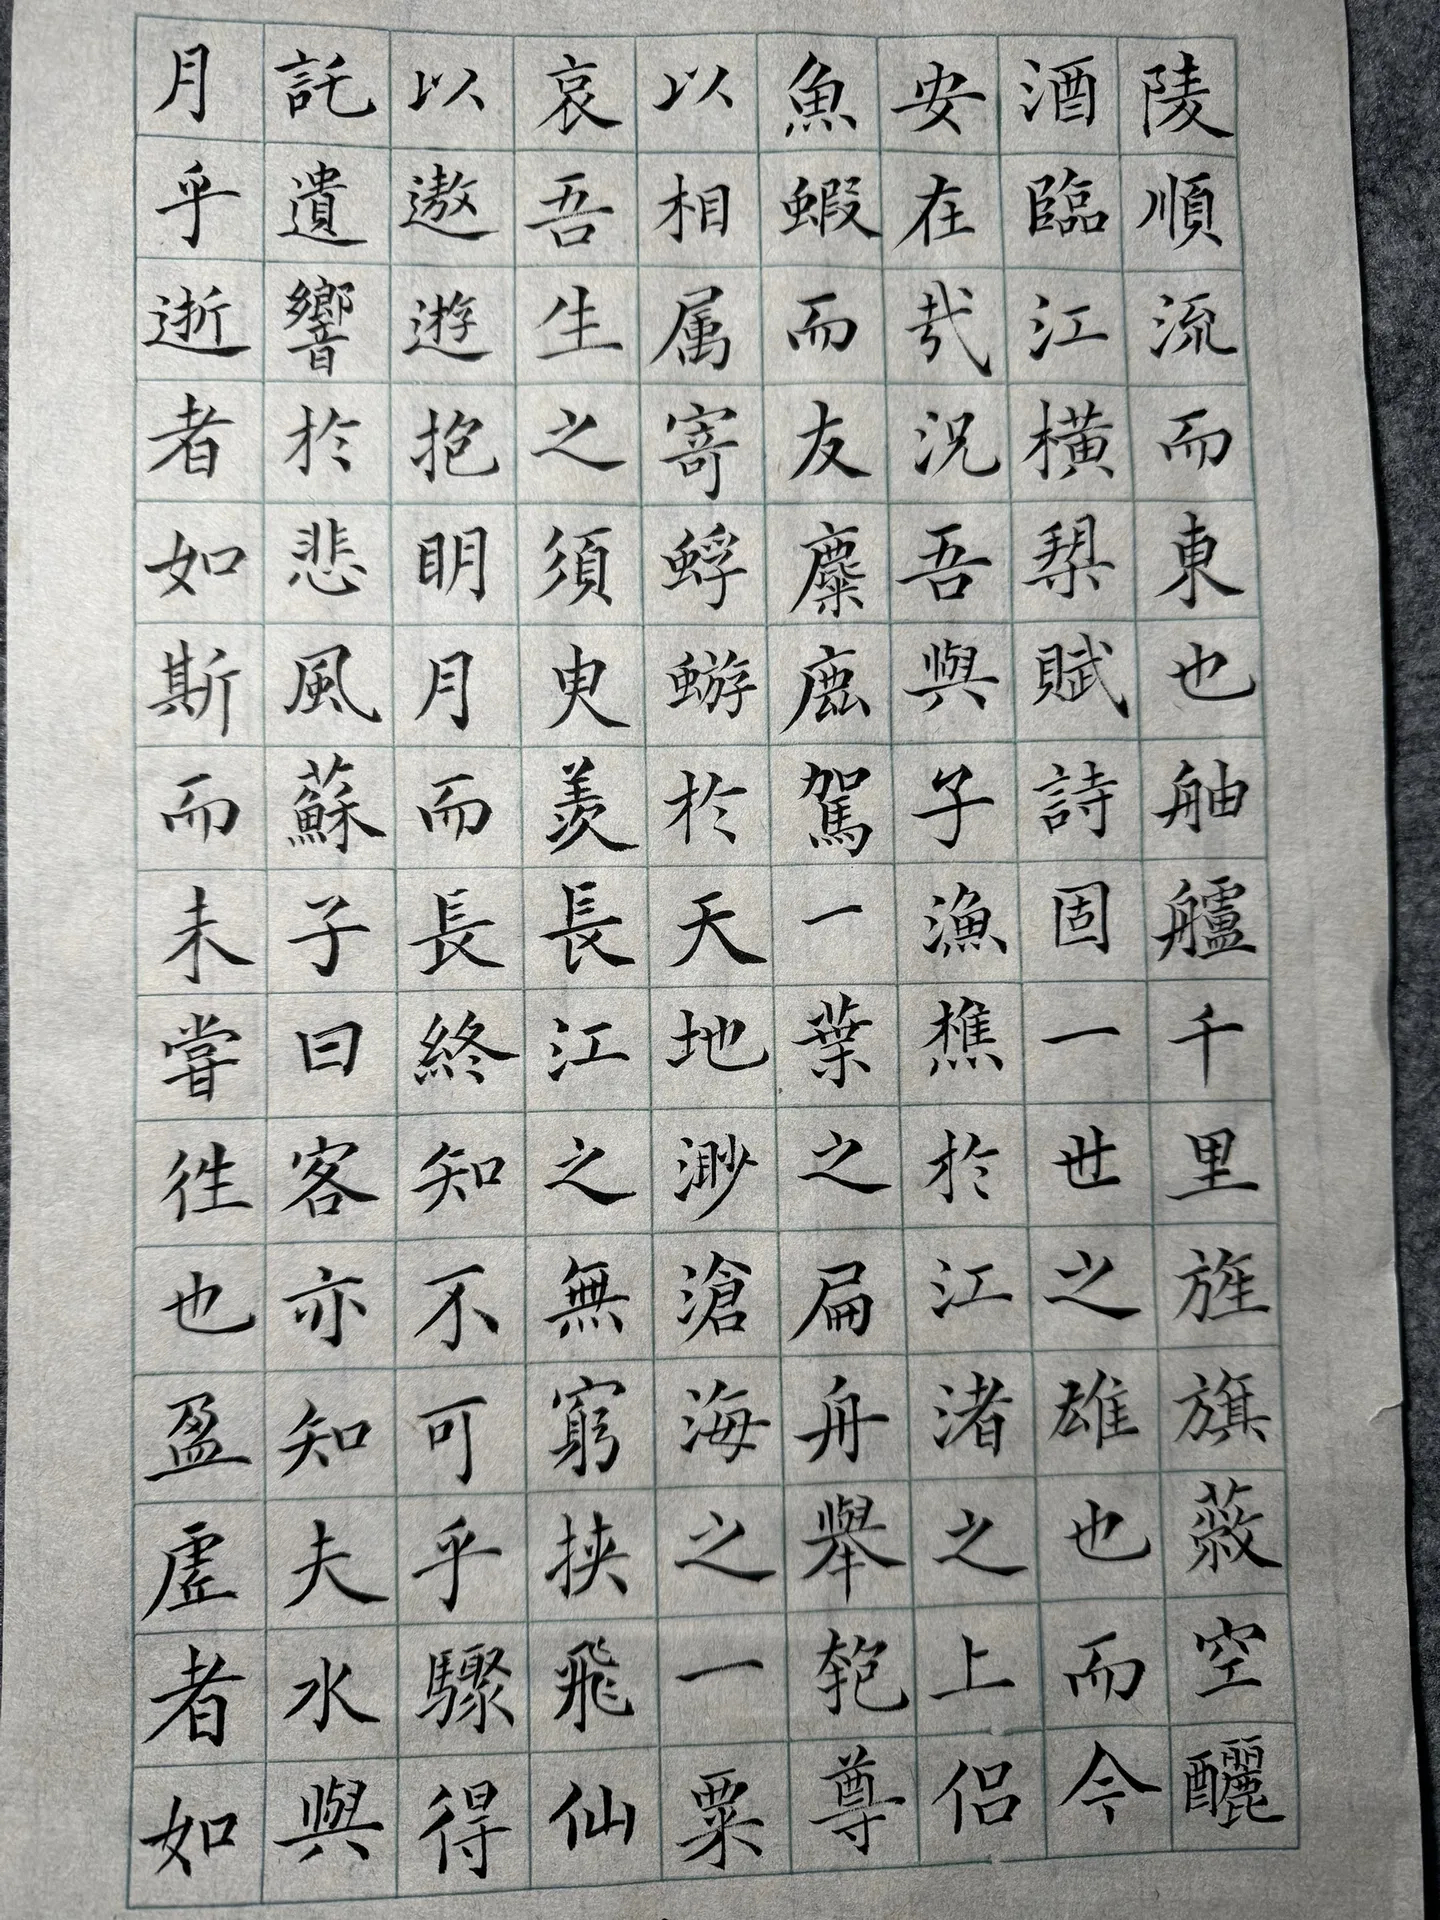 陵順流而東也舳艫千里旌旗蔽空釃
酒臨江橫槊賦詩固一世之雄也而今
安在哉況吾與子漁樵於江渚之上侶
魚蝦而友麋鹿駕一葉之扁舟舉匏尊
以相属寄蜉蝣於天地渺滄海之一粟
哀吾生之須臾羨長江之無窮挟飛仙
以遨遊抱明月而長終知不可乎驟得
託遺響於悲風蘇子曰客亦知夫水與
月乎逝者如斯而未嘗往也盈虛者如